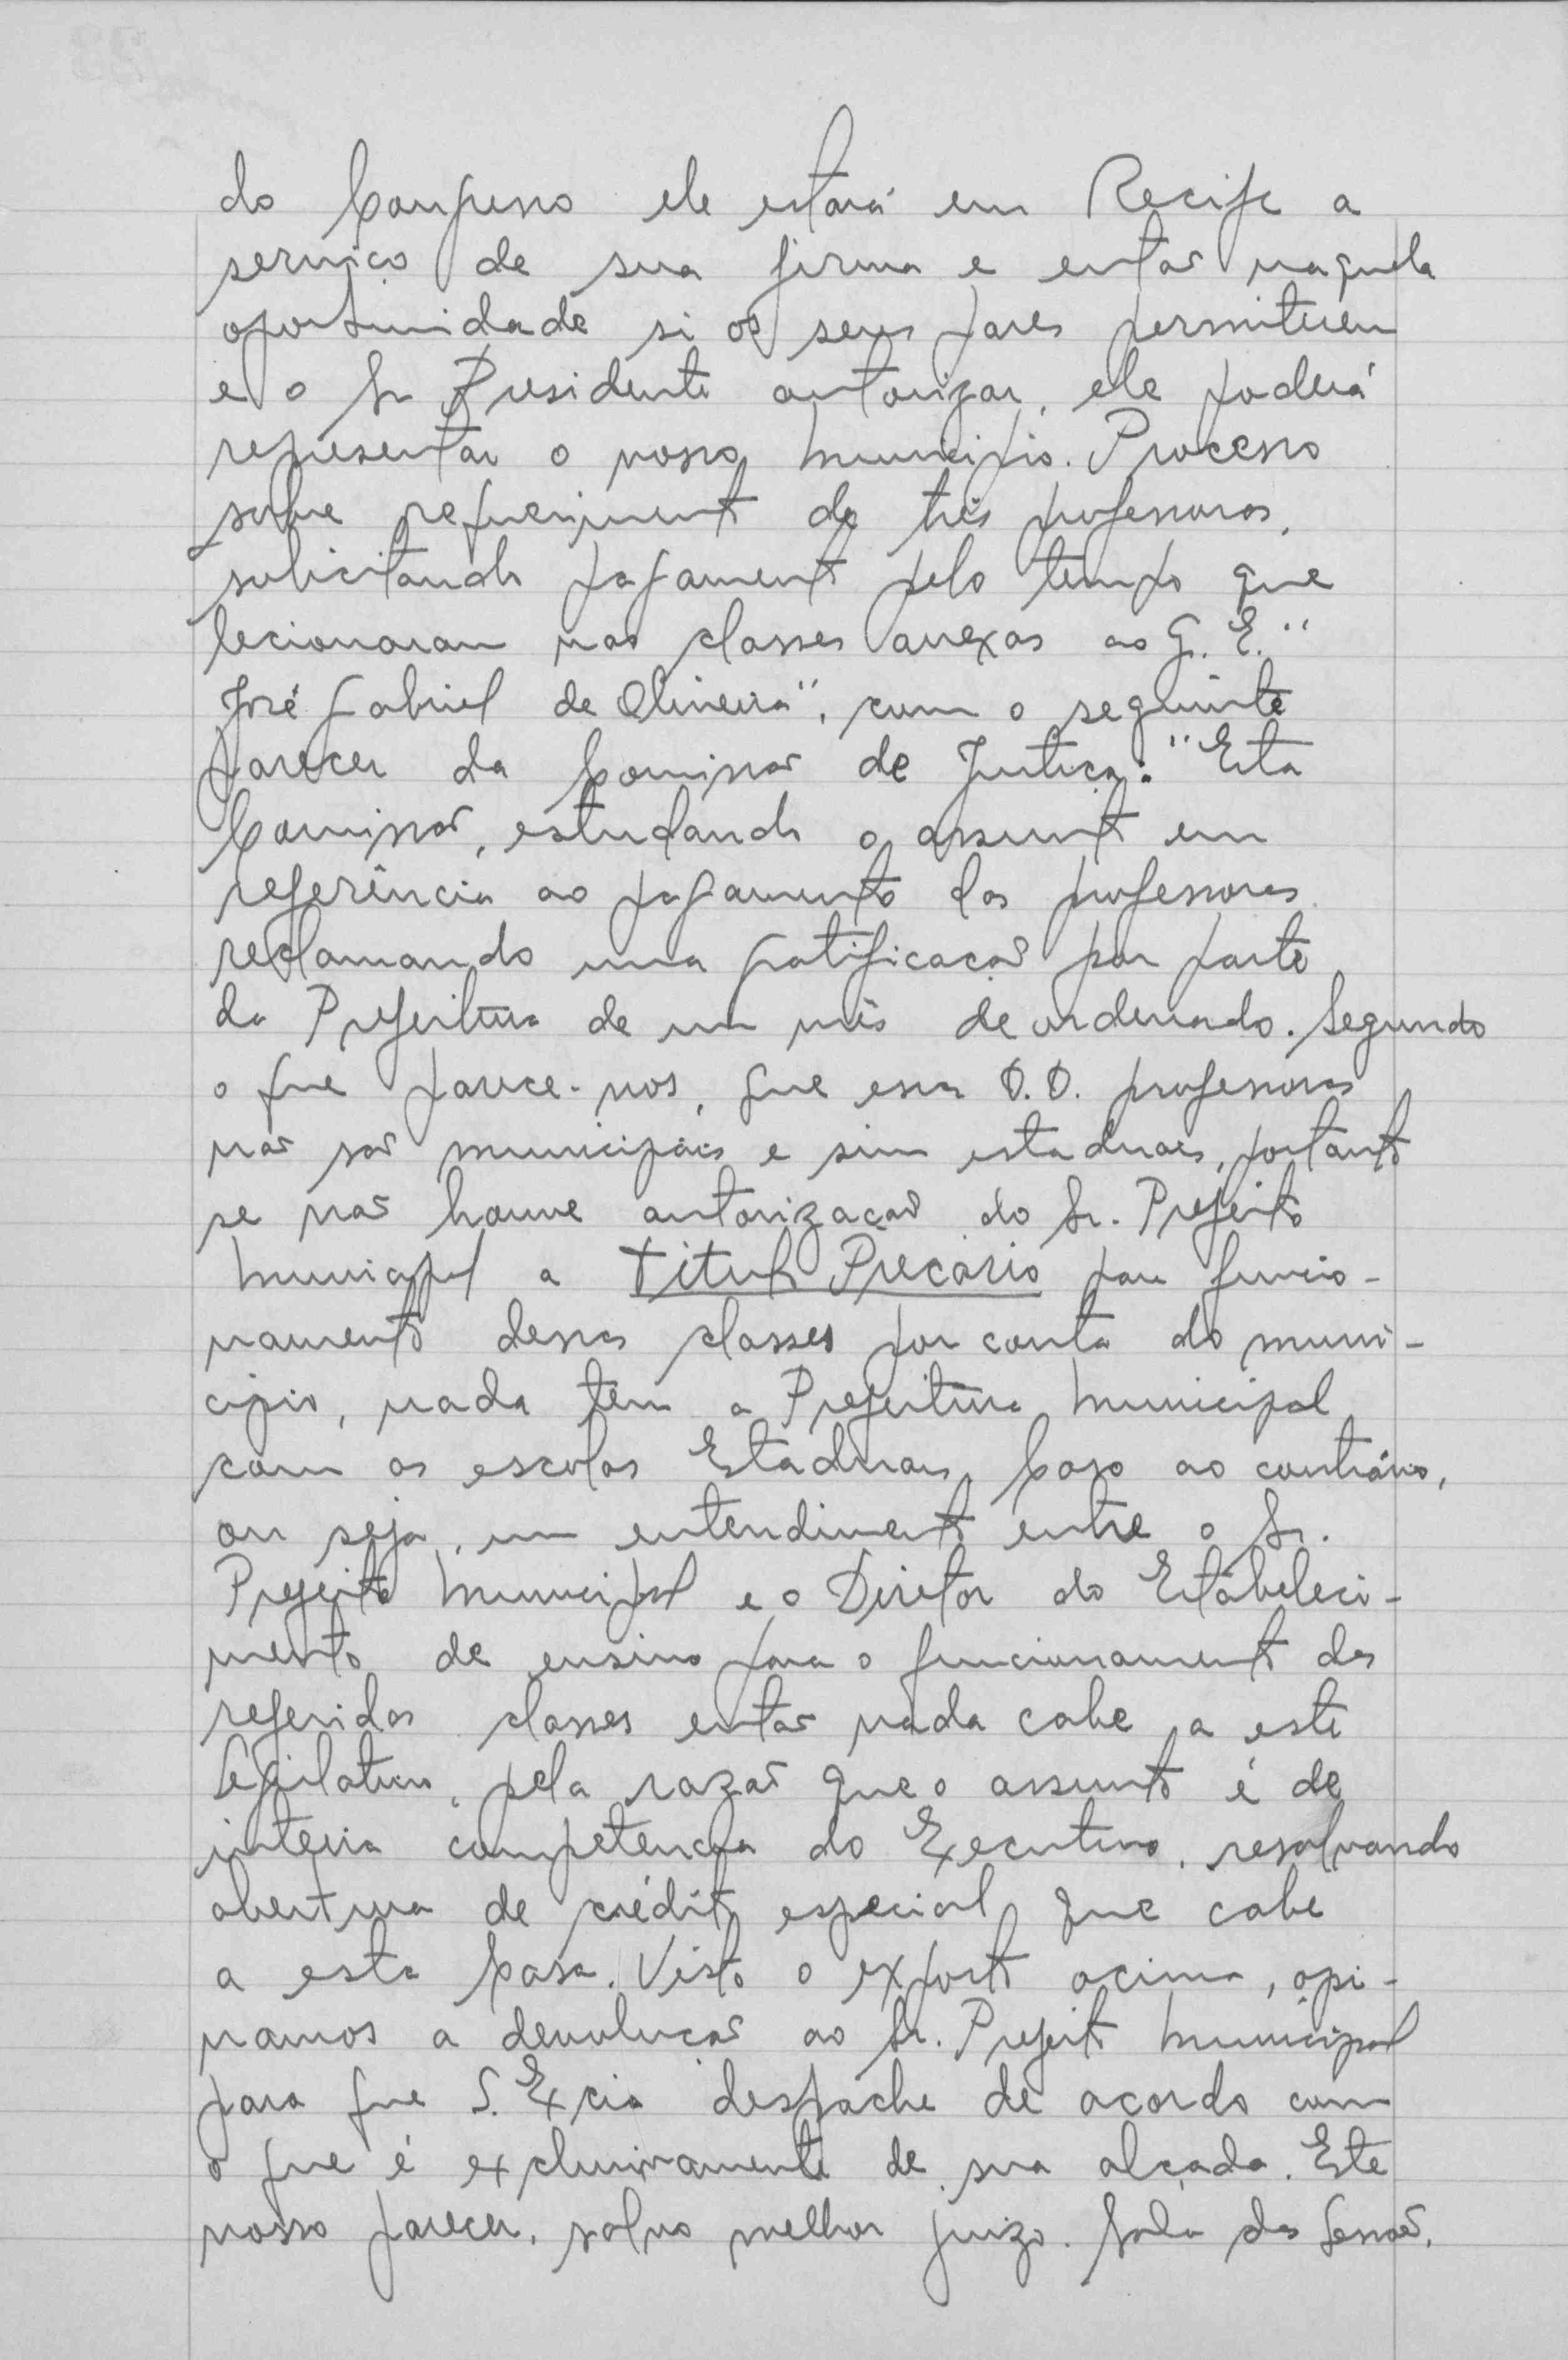 do Congresso ele estará em Recife a
serviço de sua firma e então naquela
oportunidade si os seus pares permitirem
e o Sr Presidente autorizar, ele poderá
representar o nosso Municipio. Processo
sobre requeriment de três professoras,
solicitando pagament pelo tempo que
lecionaram nas classes anexas ao G. E. "
José Gabriel de Oliveira", com o seguinte
parecer da Comissão de Justiça: "Esta
Comissão, estudando o assunt em
referência ao pagamento das professoras
reclamando uma gratificação por parte
da Prefeitura de um mês de ordenado. Segundo
o que parece-nos, que essas D.D. professoras
não são municipais e sim estaduais, portanto
se não houve autorização do Sr. Prefeito
Municipal a Titulo Precário para funcio-
namento dessas classes por conta do muni-
cipio, nada tem a Prefeitura Municipal
com as escolas Estaduais, Caso ao contrário,
ou seja, um entendimento entre o Sr.
Prefeito Municipal e o Diretor do Estabeleci-
mento de ensino para o funcionament das
referidas classes então nada cabe a este
Legislativo, pela razão que o assunto é de
inteira competencia do Executivo, resalvando
abertura de crédito especial que cabe
a esta Casa. Visto o exposto acima, opi-
namos a devolução ao Sr. Prefeito Municipal
para que S. Excia despache de acordo com
o que é exclusivamente de sua alçada. Este
nosso parecer, salvo melhor juizo. Sala das Sessões,